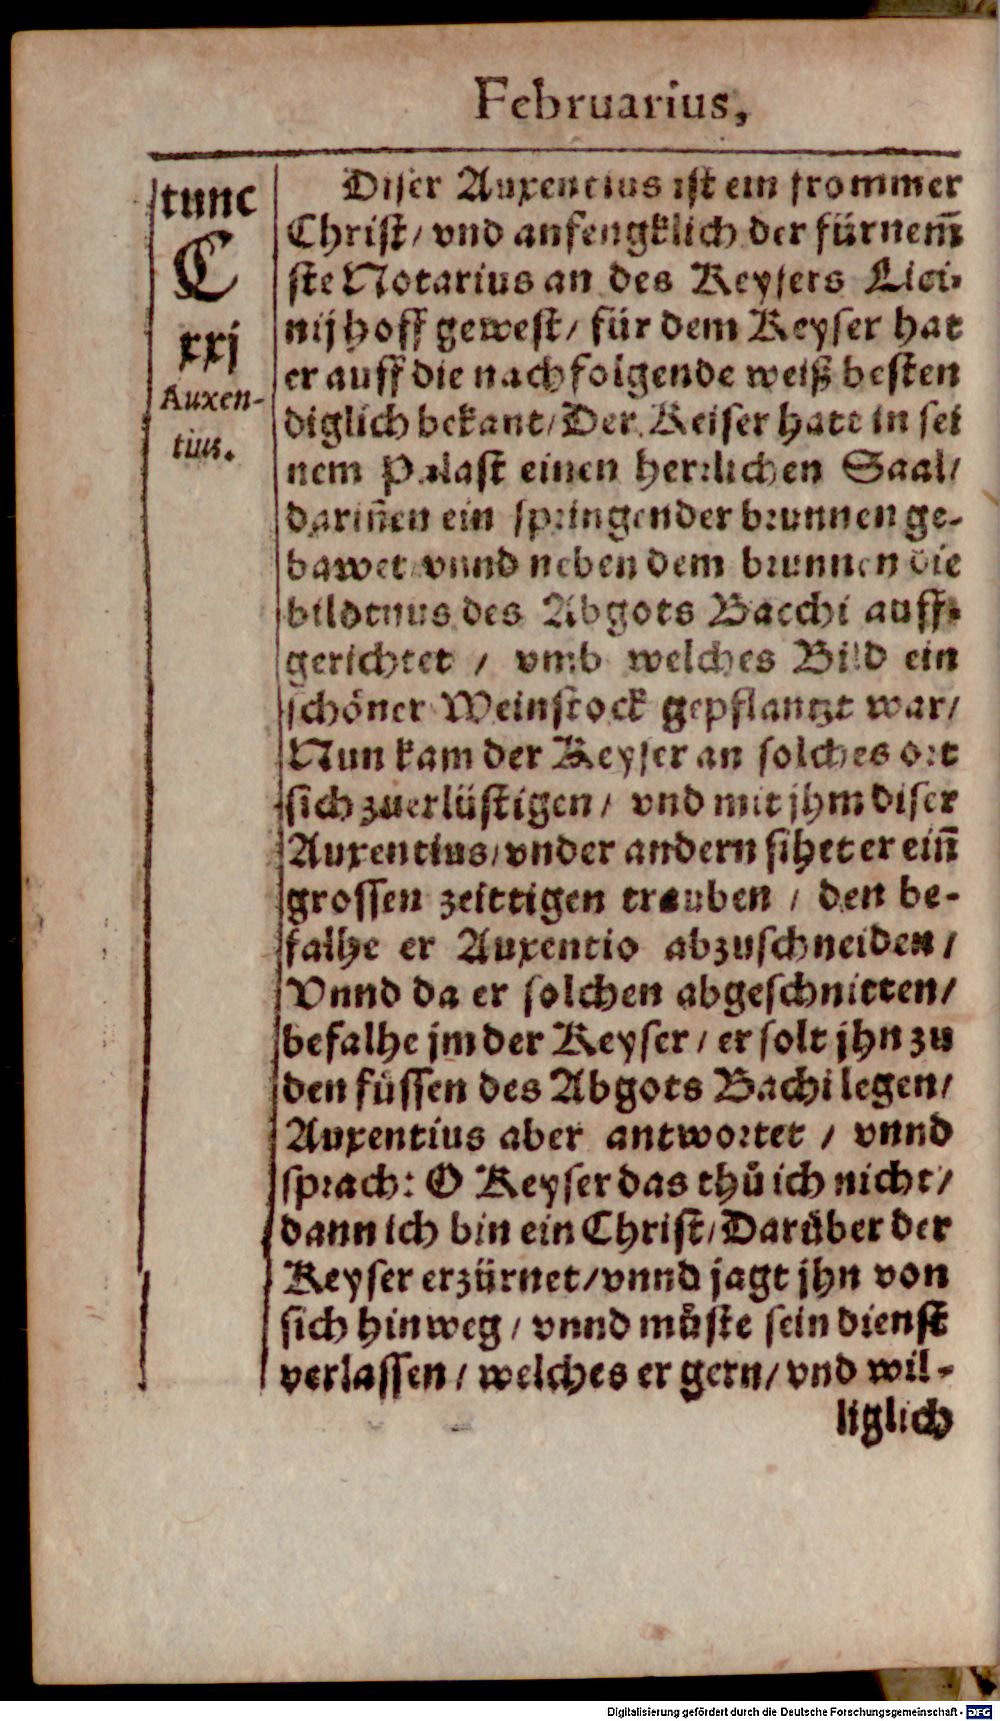 Februarius,
tunc
C
xxj
Auxen-
tius.
Diser Auxentius ist ein frommer
Christ/ vnd anfengklich der fürnem̄
ste Notarius an des Keysers Lici-
nij hoff gewest/ für dem Keyser hat
er auff die nachfolgende weiß besten
diglich bekant/ Der Keiser hatt in sei
nem Palast einen herrlichen Saal/
dariñen ein springender brunnen ge-
bawet vnnd neben dem brunnen die
bildtnus des Abgots Bacchi auff-
gerichtet / vmb welches Bild ein
schöner Weinstock gepflantzt war/
Nun kam der Keyser an solches ort
sich zuerlüstigen/ vnd mit jhm diser
Auxentius/ vnder andern sihet er eiñ
grossen zeittigen trauben / den be-
falhe er Auxentio abzuschneiden/
Vnnd da er solchen abgeschnitten/
befalhe jm der Keyser/ er solt jhn zu
den füssen des Abgots Bachi legen/
Auxentius aber antwortet / vnnd
sprach: O Keyser das thů ich nicht/
dann ich bin ein Christ/ Darüber der
Keyser erzürnet/ vnnd jagt jhn von
sich hinweg / vnnd můste sein dienst
verlassen/ welches er gern/ vnd wil-
liglich
Digitalisierung gefördert durch die Deutsche Forschungsgemeinschaft - DFG